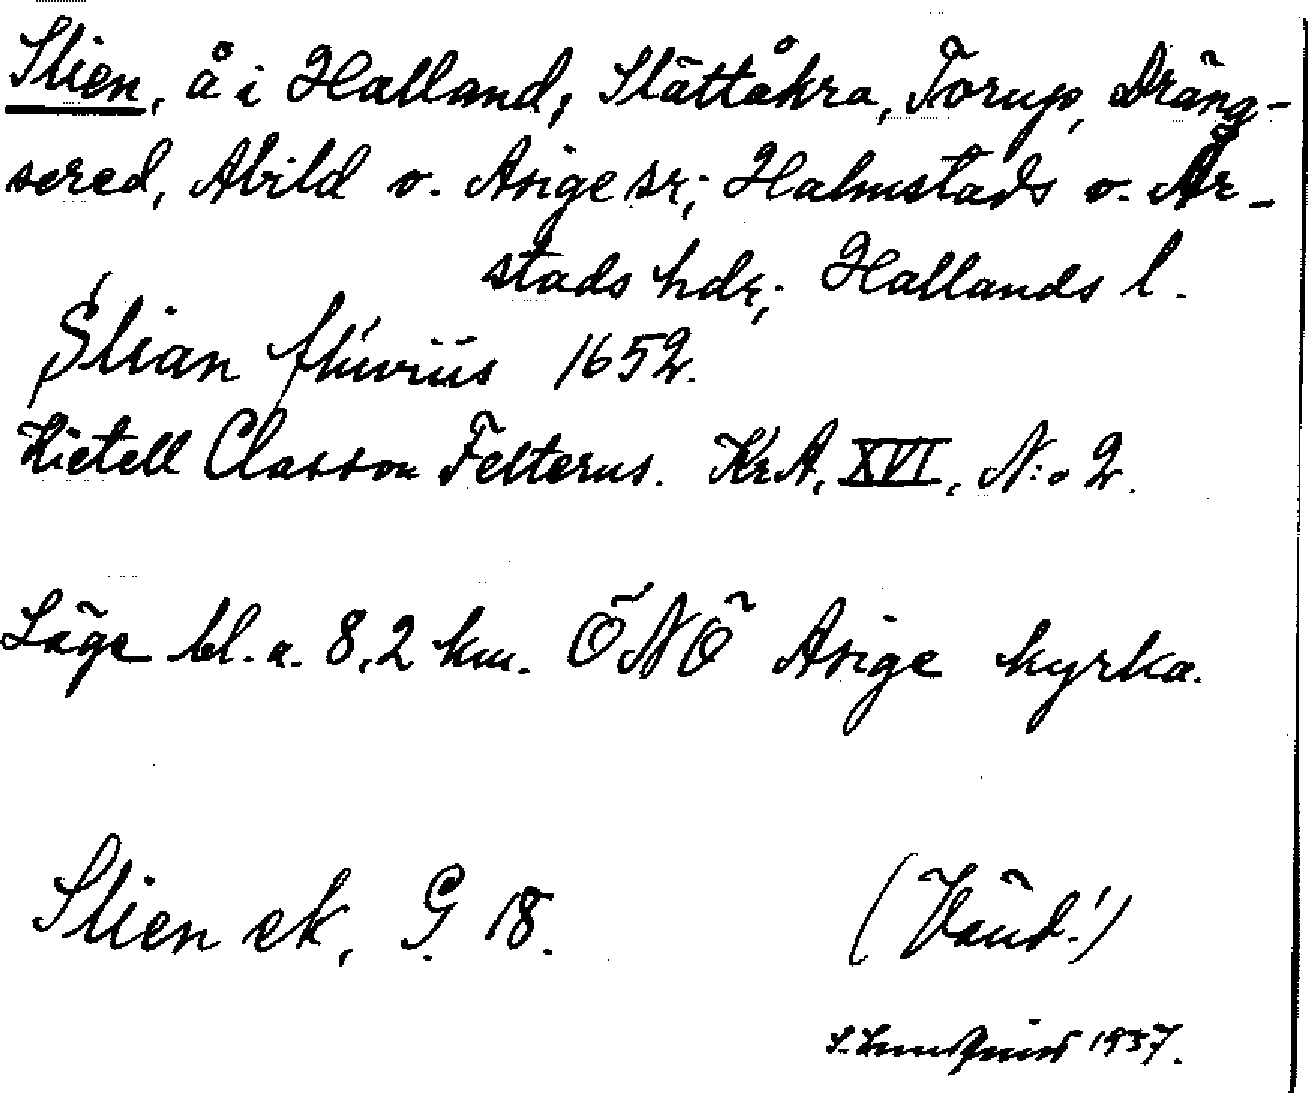 Slien, å i Halland, Slättåkra, Torup, Dräng-
sered, Abild o. Asige sr; Halmstads o. År-
stads hdr; Hallands l.
Slian fluvius 1652.
Kietell Classon Felterus. KrA, XVI, N:o 2.
Läge bl.a. 8,2 km. ÖNÖ Asige kyrka.
Slien ek, G. 18.
(Vänd!)
S. Lundquist 1937.